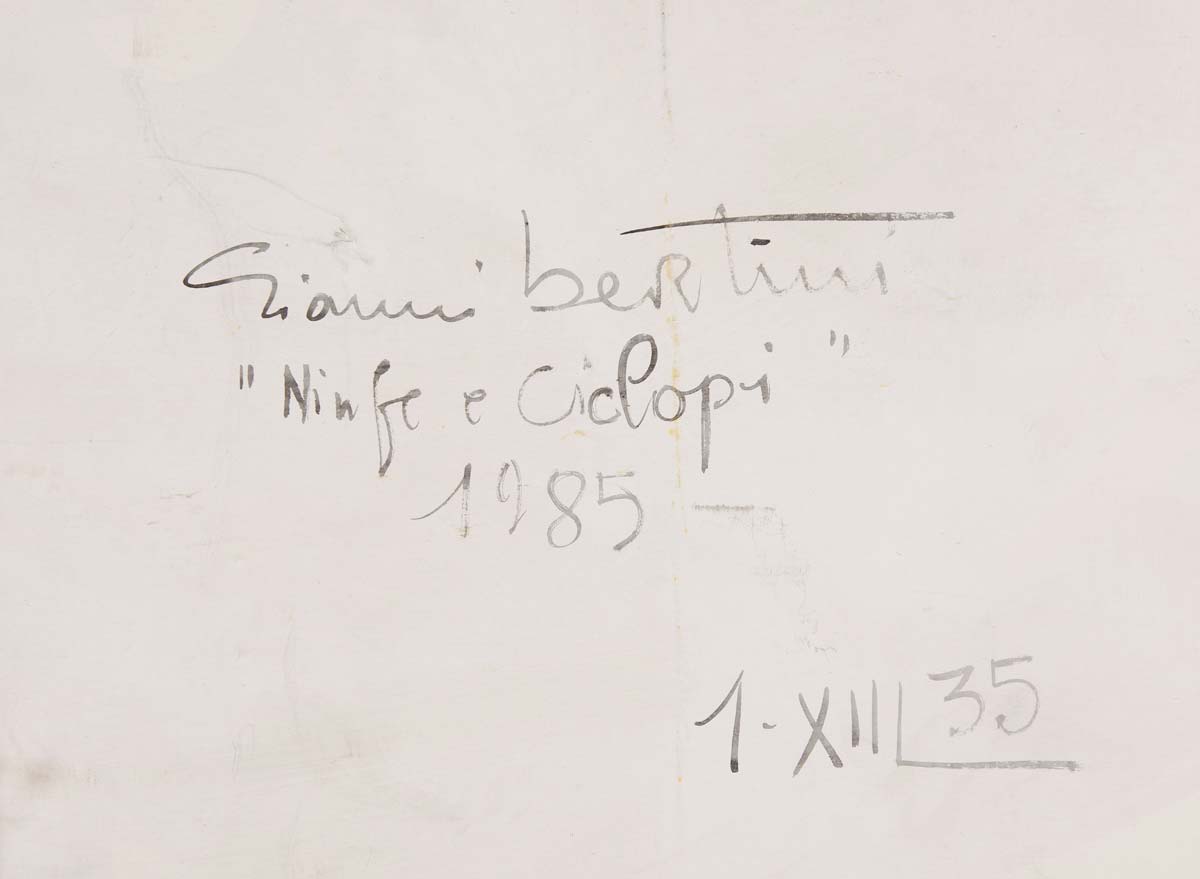 Gianni bertini
"Ninfe e Ciclopi"
1985 -
1-XIII 35